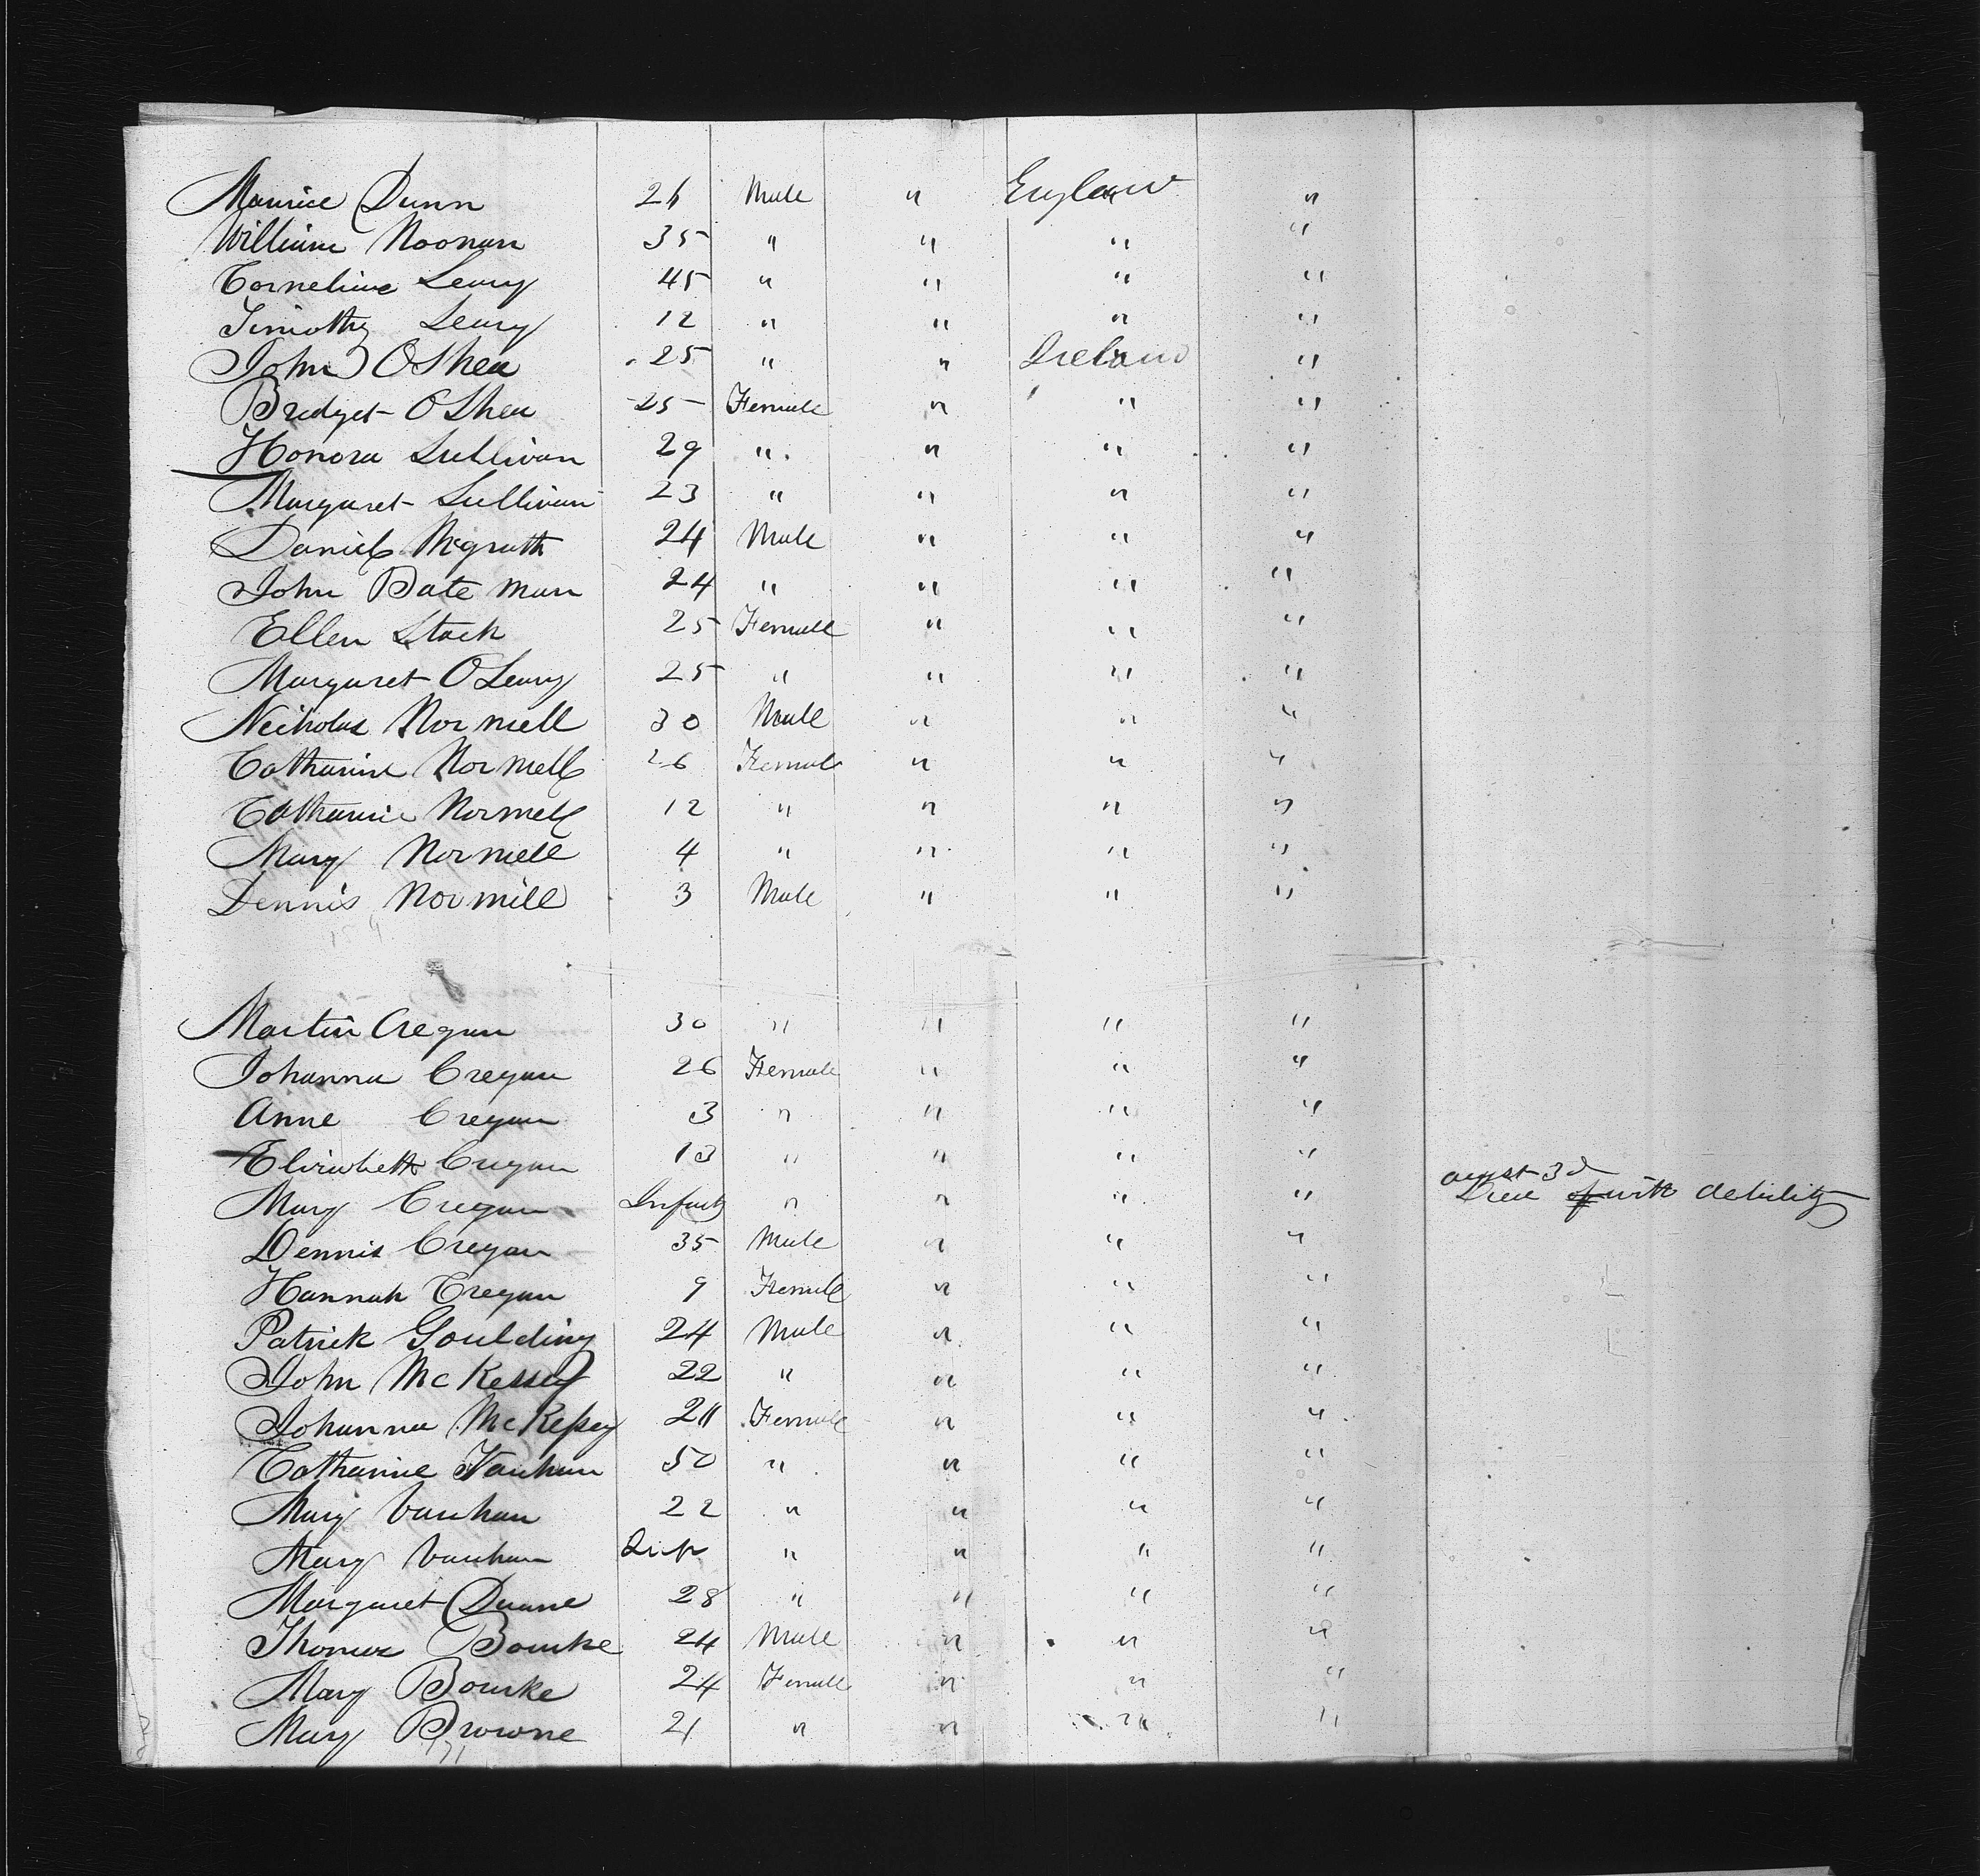 Maurice Dunn 26 Male " England "
William Noonan 35 " " " "
Cornelius Leary 45 " " " "
Timothy Leary 12 " " " "
John OShea 25 " " Ireland "
Bridget OShea 25 Female " " "
Honora Sullivan 29 " " " "
Margaret Sullivan 23 " " " "
Daniel Mcgrath 24 Male " " "
John Bateman 24 " " " "
Ellen Stack 25 Female " " "
Margaret OLeary 25 " " " "
Nicholas Normell 30 Male " " "
Catharine Normell 26 Female " " "
Catharine Normell 12 " " " "
Mary Normell 4 " " " "
Dennis Normill 3 Male " " "
Martin Cregan 30 " " " "
Johanna Cregan 26 Female " " "
Anne Cregan 3 " " " "
Elizabeth Cregan 13 " " " "
august 3d
Mary Cregan Infant " " " " Died of with debility
Dennis Cregan 35 Male " " "
Hannah Cregan 9 Female " " "
Patrick Goulding 24 Male " " "
John McKessey 22 " " " "
Johanna McKessey 21 Female " " "
Catharine Vauhan 50 " " " "
Mary Vauhan 22 " " " "
Mary Vauhan Inf " " " "
Margaret Duane 28 " " " "
Thomas Bourke 24 Male " " "
Mary Bourke 24 Female " " "
Mary Browne 21 " " " "
171